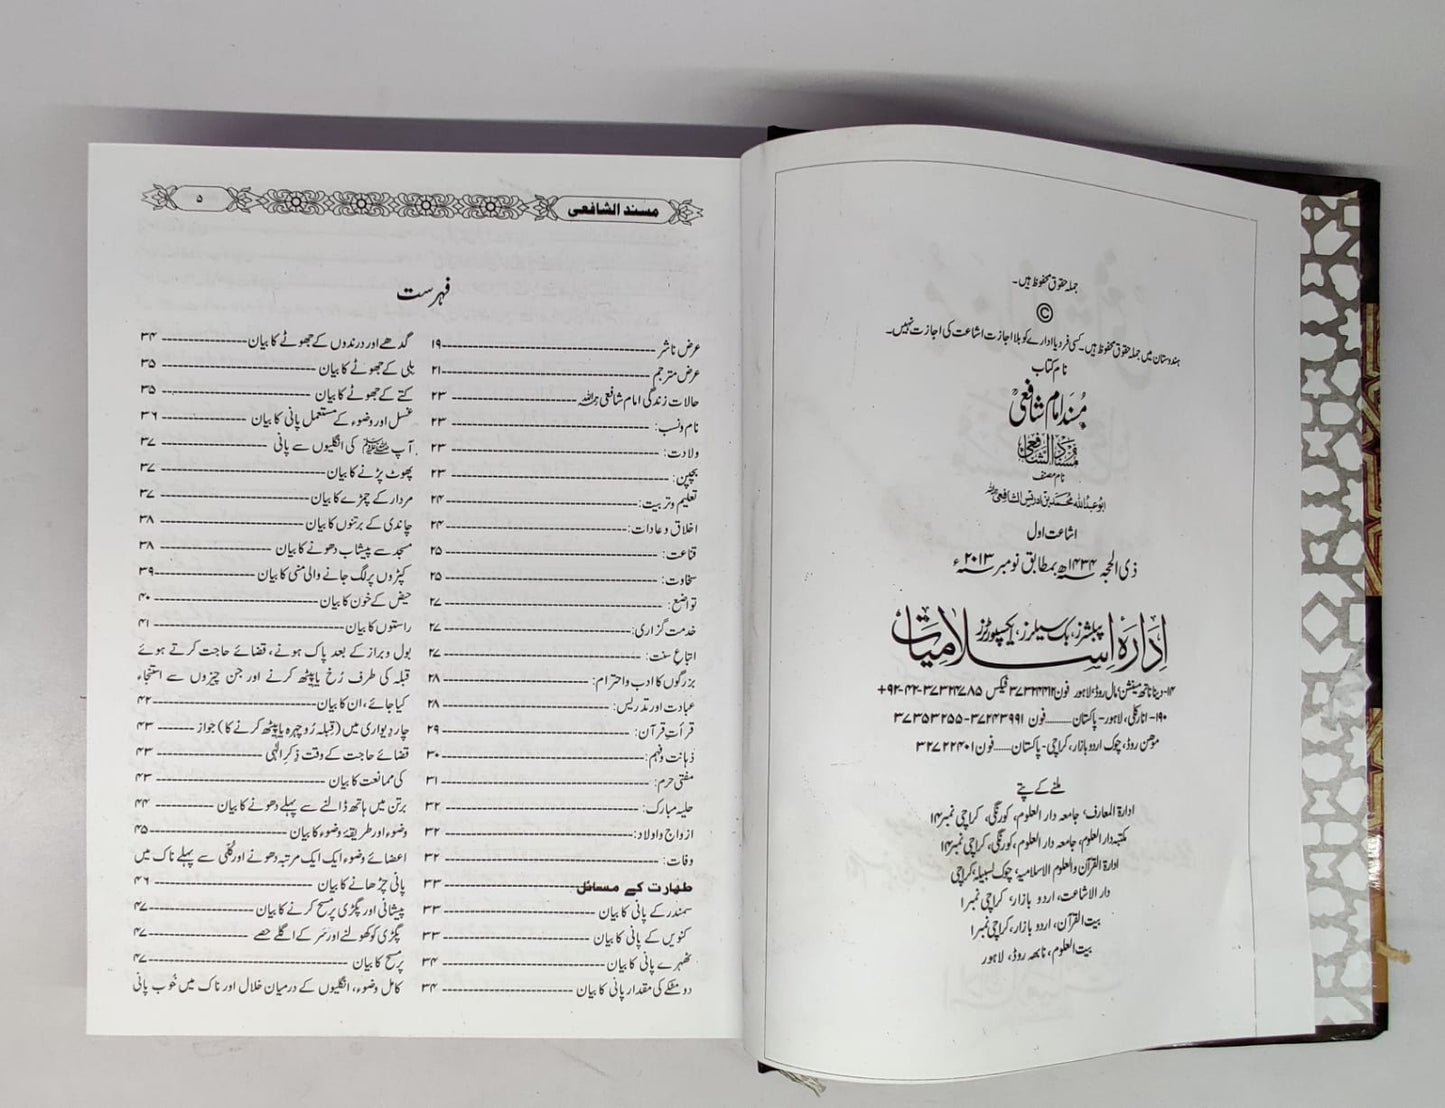 جملہ حقوق محفوظ ہیں۔
©
ہندوستان میں جملہ حقوق محفوظ ہیں۔ کسی فرد یا ادارے کو بلا اجازت اشاعت کی اجازت نہیں۔
نام کتاب
مُسند امام شافعیؒ
مُسْنَدُ الشَّافِعِی
نام مصنف
ابو عبد اللہ محمد بن ادریس الشافعی رحمہ اللہ
اشاعت اول
ذی الحجہ ۱۴۳۴ھ بمطابق نومبر ۲۰۱۳ء
ادارہ اسلامیات پبلشرز، بک سیلرز، ایکسپورٹرز
۱۴- دینا ناتھ مینشن مال روڈ، لاہور فون ۳۷۳۲۴۴۱۲ فیکس ۳۷۳۲۴۷۸۵-۴۲-۹۲+
۱۹۰- انارکلی، لاہور - پاکستان......... فون ۳۷۲۴۳۹۹۱-۳۷۳۵۳۲۵۵
موھن روڈ، چوک اردو بازار، کراچی - پاکستان......فون ۳۲۷۲۲۴۰۱
ملنے کے پتے
ادارۃ المعارف، جامعہ دار العلوم، کورنگی، کراچی نمبر ۱۴
مکتبہ دار العلوم، جامعہ دار العلوم، کورنگی، کراچی نمبر ۱۴
ادارۃ القرآن والعلوم الاسلامیہ، چوک لسبیلہ کراچی
دار الاشاعت، اردو بازار، کراچی نمبر ۱
بیت القرآن، اردو بازار، کراچی نمبر ۱
بیت العلوم، نابھہ روڈ، لاہور
مسند الشافعی ۵
فہرست
عرض ناشر ۱۹
عرض مترجم ۲۱
حالات زندگی امام شافعی رحمہ اللہ ۲۳
نام و نسب: ۲۳
ولادت: ۲۳
بچپن: ۲۳
تعلیم و تربیت: ۲۴
اخلاق و عادات: ۲۴
قناعت: ۲۵
سخاوت: ۲۵
تواضع: ۲۷
خدمت گزاری: ۲۷
اتباع سنت: ۲۷
بزرگوں کا ادب و احترام: ۲۸
عبادت اور تدریس: ۲۸
قرأتِ قرآن: ۲۹
ذہانت و فہم: ۳۰
مفتی حرم: ۳۱
حلیہ مبارک: ۳۲
ازواج و اولاد: ۳۲
وفات: ۳۲
طہارت کے مسائل ۳۳
سمندر کے پانی کا بیان ۳۳
کنویں کے پانی کا بیان ۳۳
ٹھہرے پانی کا بیان ۳۴
دو مٹکے کی مقدار پانی کا بیان ۳۴
گدھے اور درندوں کے جھوٹے کا بیان ۳۴
بلی کے جھوٹے کا بیان ۳۵
کتے کے جھوٹے کا بیان ۳۵
غسل اور وضوء کے مستعمل پانی کا بیان ۳۶
آپ ﷺ کی انگلیوں سے پانی ۳۷
پھوٹ پڑنے کا بیان ۳۷
مردار کے چمڑے کا بیان ۳۷
چاندی کے برتنوں کا بیان ۳۸
مسجد سے پیشاب دھونے کا بیان ۳۸
کپڑوں پر لگ جانے والی منی کا بیان ۳۹
حیض کے خون کا بیان ۴۰
راستوں کا بیان ۴۱
بول و براز کے بعد پاک ہونے، قضائے حاجت کرتے ہوئے
قبلہ کی طرف رُخ یا پیٹھ کرنے اور جن چیزوں سے استنجاء
کیا جائے، ان کا بیان ۴۲
چار دیواری میں (قِبلہ رُو چہرہ یا پیٹھ کرنے کا) جواز ۴۳
قضائے حاجت کے وقت ذِکرِ الٰہی ۴۳
کی ممانعت کا بیان ۴۳
برتن میں ہاتھ ڈالنے سے پہلے دھونے کا بیان ۴۴
وضوء اور طریقۂ وضوء کا بیان ۴۵
اعضائے وضوء ایک ایک مرتبہ دھونے اور کُلّی سے پہلے ناک میں
پانی چڑھانے کا بیان ۴۶
پیشانی اور پگڑی پر مسح کرنے کا بیان ۴۷
پگڑی کو کھولنے اور سَر کے اگلے حصے ۴۷
پر مسح کا بیان ۴۷
کامل وضوء، انگلیوں کے درمیان خلال اور ناک میں خُوب پانی